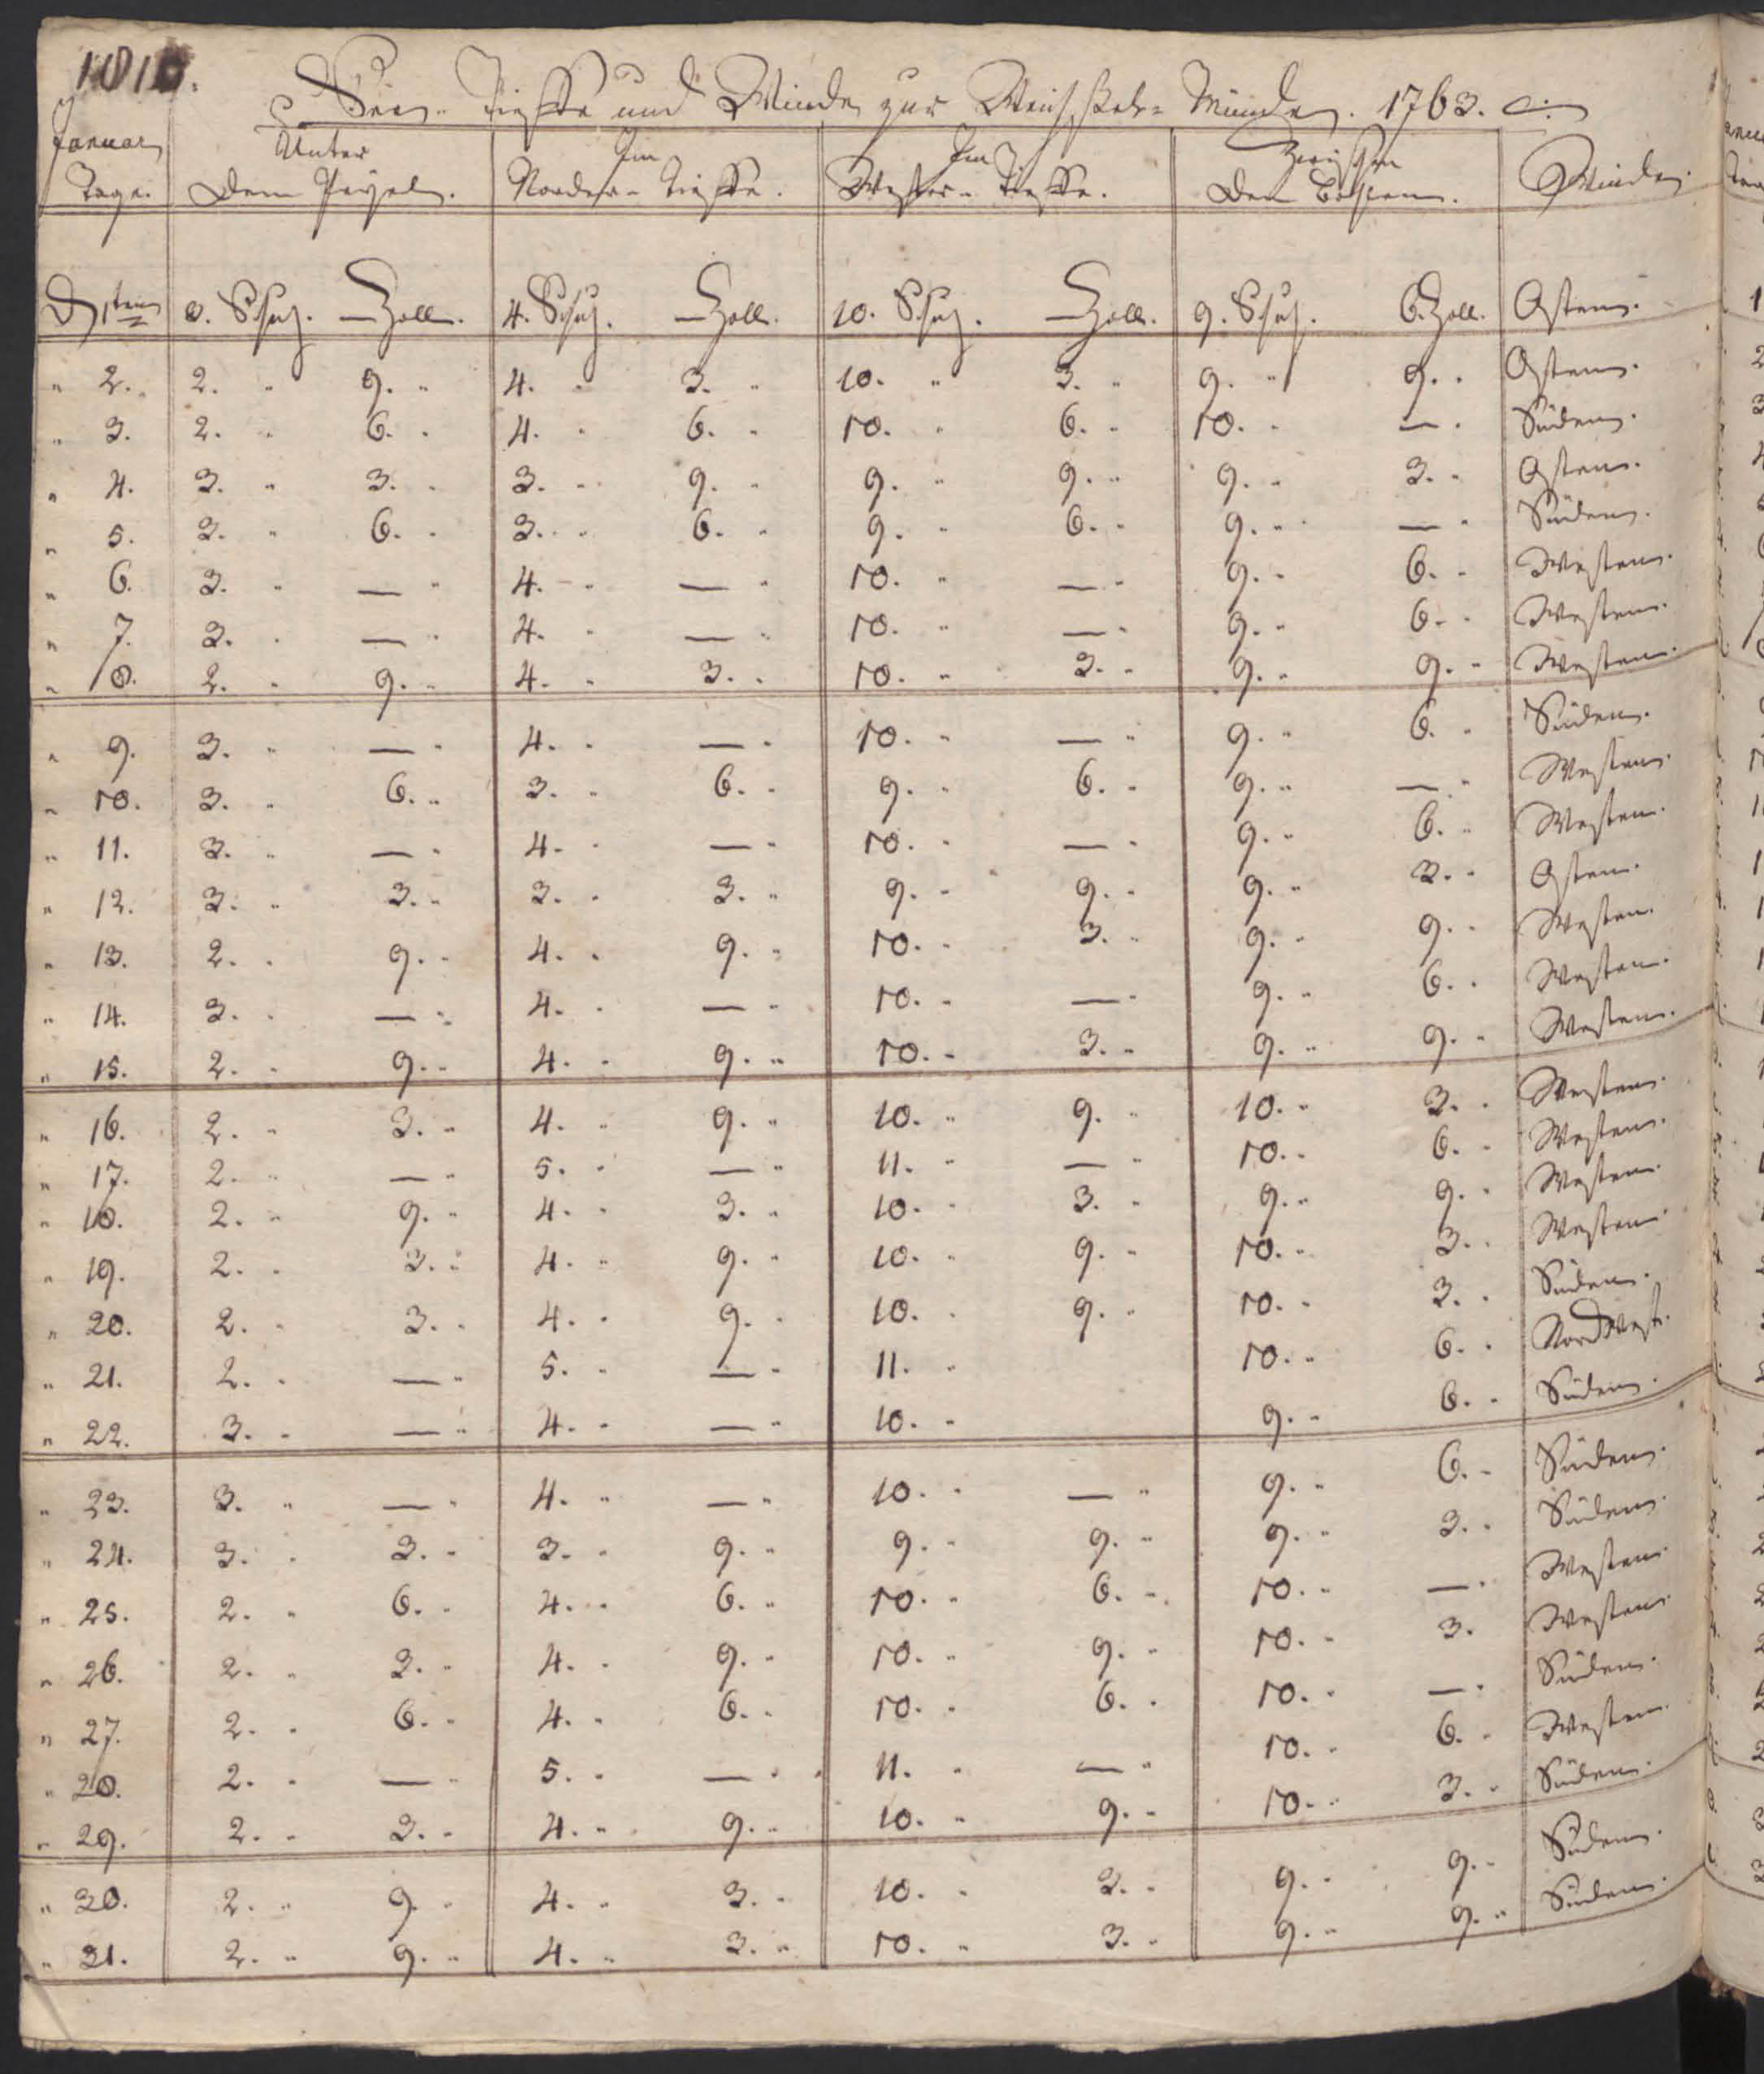 1010.
See-Tieffe und Winde zur Weichsel-Münde. 1763.
Januar Unter Im Im Zwischen
Tage. Dem Peigel. Norder-Tieffe. Wester-Tieffe. Den Winde.
D 1ten 3. Schuh. — Zoll. 4. Schuh. — Zoll. 10. Schuh. — Zoll. 9. Schuh. 6. Zoll. Osten.
" 2. 2. " 9. " 4. " 3. " 10. " 3. " 9. " 9. " Osten.
" 3. 2. " 6. " 4. " 6. " 10. " 6. " 10. " — " Süden.
" 4. 3. " 3. " 3. " 9. " 9. " 9. " 9. " 3. " Osten.
" 5. 3. " 6. " 3. " 6. " 9. " 6. " 9. " — " Süden.
" 6. 3. " — " 4. " — " 10. " — " 9. " 6. " Westen.
" 7. 3. " — " 4. " — " 10. " — " 9. " 6. " Westen.
" 8. 2. " 9. " 4. " 3. " 10. " 3. " 9. " 9. " Westen.
" 9. 3. " — " 4. " — " 10. " — " 9. " 6. " Süden.
" 10. 3. " 6. " 3. " 6. " 9. " 6. " 9. " — " Westen.
" 11. 3. " — " 4. " — " 10. " — " 9. " 6. " Westen.
" 12. 3. " 3. " 3. " 3. " 9. " 9. " 9. " 3. " Osten.
" 13. 2. " 9. " 4. " 9. " 10. " 3. " 9. " 9. " Westen.
" 14. 3. " — " 4. " — " 10. " — " 9. " 6. " Westen.
" 15. 2. " 9. " 4. " 9. " 10. " 3. " 9. " 9. " Westen.
" 16. 2. " 3. " 4. " 9. " 10. " 9. " 10. " 3. " Westen.
" 17. 2. " — " 5. " — " 11. " — " 10. " 6. " Westen.
" 18. 2. " 9. " 4. " 3. " 10. " 3. " 9. " 9. " Westen.
" 19. 2. " 3. " 4. " 9. " 10. " 9. " 10. " 3. " Westen.
" 20. 2. " 3. " 4. " 9. " 10. " 9. " 10. " 3. " Süden.
" 21. 2. " — " 5. " — " 11. " 10. " 6. " NordWest.
" 22. 3. " — " 4. " — " 10. " 9. " 6. " Süden.
" 23. 3. " — " 4. " — " 10. " — " 9. " 6. " Süden.
" 24. 3. " 3. " 3. " 9. " 9. " 9. " 9. " 3. " Süden.
" 25. 2. " 6. " 4. " 6. " 10. " 6. " 10. " — " Westen.
" 26. 2. " 3. " 4. " 9. " 10. " 9. " 10. " 3. Westen.
" 27. 2. " 6. " 4. " 6. " 10. " 6. " 10. " — " Süden.
" 28. 2. " — " 5. " — " 11. " — " 10. " 6. " Westen.
" 29. 2. " 3. " 4. " 9. " 10. " 9. " 10. " 3. " Süden.
" 30. 2. " 9. " 4. " 3. " 10. " 3. " 9. " 9. " Süden.
" 31. 2. " 9. " 4. " 3. " 10. " 3. " 9. " 9. " Süden.